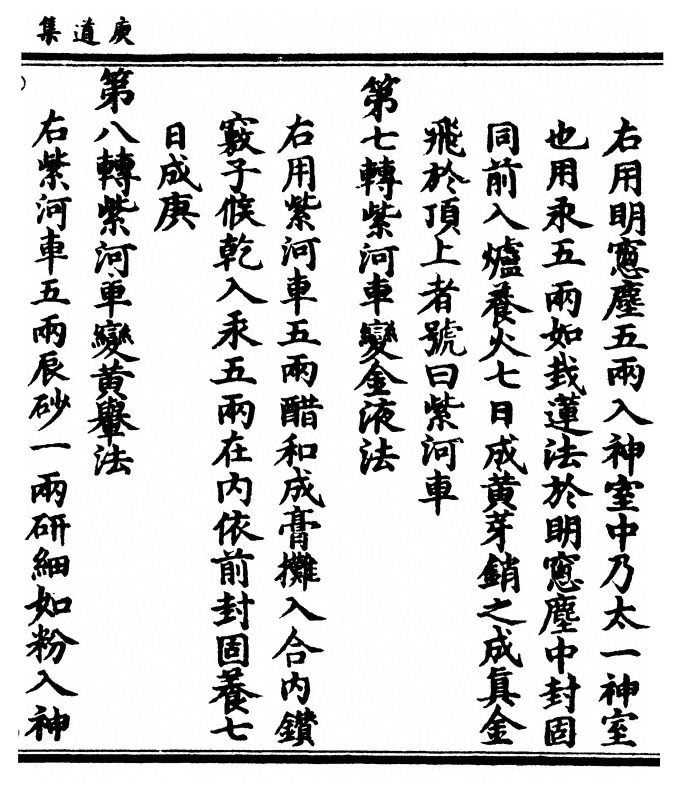 庚道集
右用明窓塵五兩入神室中乃太一神室
也用汞五兩如㘽蓮法於明窓塵中封固
同前入爐養火七日成黄芽銷之成眞金
飛於頂上者號曰紫河車
第七轉紫河車變金液法
右用紫河車五兩醋和成膏攤入合内鑚
竅子候乾入汞五兩在内依前封固養七
日成庚
第八轉紫河車變黄轝法
右紫河車五兩辰砂一兩研細如粉入神